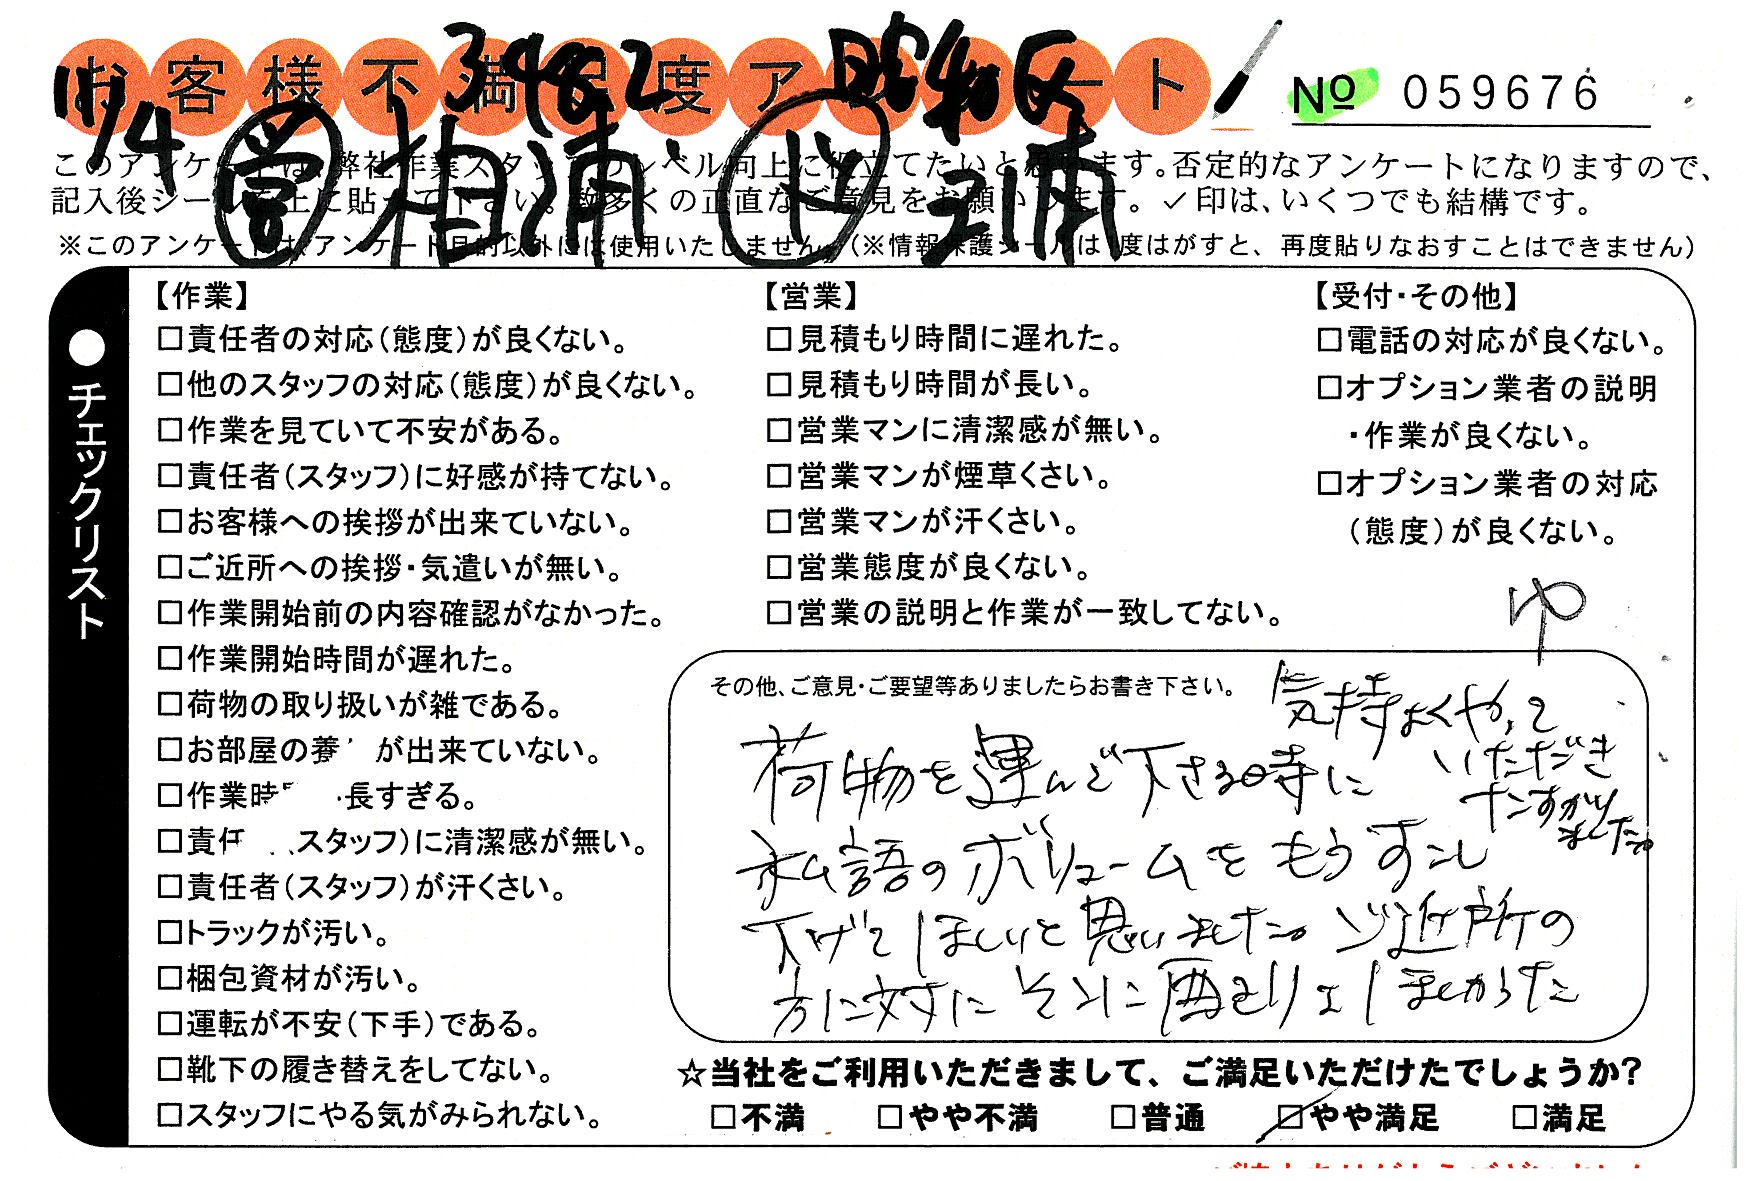 お客様不満足度アンケート
11/4 3482
№ 059676
営 相浦
このアンケートは、弊社作業スタッフのレベル向上に役立てたいと思います。否定的なアンケートになりますので、
記入後シールを上に貼って下さい。数多くの正直なご意見をお願いします。✓印は、いくつでも結構です。
※このアンケートは、アンケート目的以外には使用いたしません。(※情報保護シールは1度はがすと、再度貼りなおすことはできません)
●チェックリスト
【作業】
□責任者の対応(態度)が良くない。
□他のスタッフの対応(態度)が良くない。
□作業を見ていて不安がある。
□責任者(スタッフ)に好感が持てない。
□お客様への挨拶が出来ていない。
□ご近所への挨拶・気遣いが無い。
□作業開始前の内容確認がなかった。
□作業開始時間が遅れた。
□荷物の取り扱いが雑である。
□お部屋の養 が出来ていない。
□作業時 長すぎる。
□責任 スタッフ)に清潔感が無い。
□責任者(スタッフ)が汗くさい。
□トラックが汚い。
□梱包資材が汚い。
□運転が不安(下手)である。
□靴下の履き替えをしてない。
□スタッフにやる気がみられない。
【営業】
□見積もり時間に遅れた。
□見積もり時間が長い。
□営業マンに清潔感が無い。
□営業マンが煙草くさい。
□営業マンが汗くさい。
□営業態度が良くない。
□営業の説明と作業が一致してない。
【受付・その他】
□電話の対応が良くない。
□オプション業者の説明
・作業が良くない。
□オプション業者の対応
(態度)が良くない。
ゆ
その他、ご意見・ご要望等ありましたらお書き下さい。
気持よくやって
いただき
たすかり
ました。
荷物を運んで下さる時に
私語のボリュームをもうすこし
下げてほしいと思いました。ご近所の
方に対
ほしかった
☆当社をご利用いただきまして、ご満足いただけたでしょうか?
□不満 □やや不満 □普通 ☑やや満足 □満足